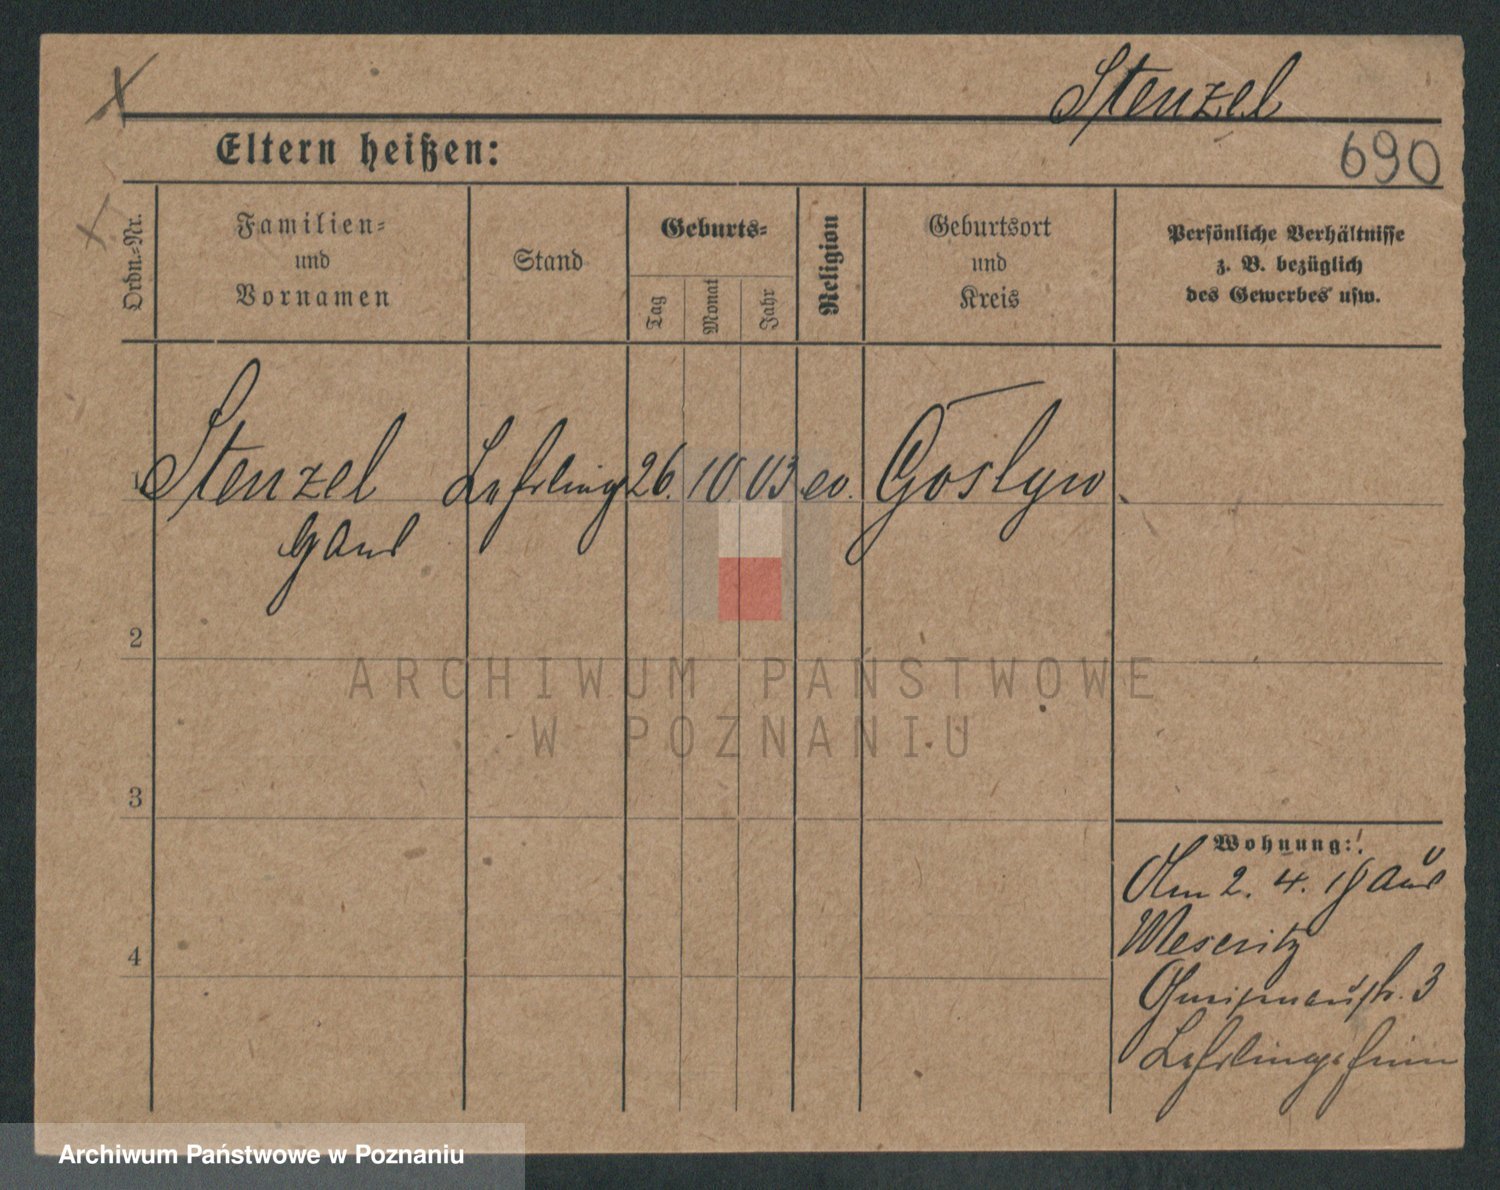 Stenzel
690
Eltern heißen:
Ordn.-Nr.
Familien-
und
Vornamen
Stand
Geburts-
Tag
Monat
Jahr
Religion
Geburtsort
und
Kreis
Persönliche Verhältnisse
z. B. bezüglich
des Gewerbes usw.
1 Stenzel Lehrling 26. 10. 03 ev. Gostyn
2
3
4
Wohnung:
Am 2. 4. 19 aus
Meseritz
3
Lehrlingsheim
ARCHIWUM PAŃSTWOWE
W POZNANIU
Archiwum Państwowe w Poznaniu